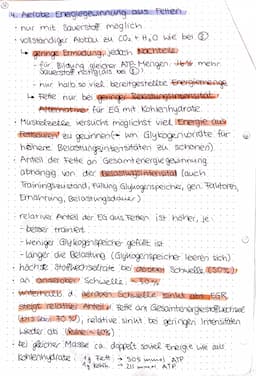 4. Aerobe Energiegewinnung aus Fetten
- nur mit Sauerstoff möglich
- vollständiger Abbau zu CO₂ + H₂O wie bei ②
↳ geringe Ermüdung, jedoch Nachteile
- für Bildung gleicher ATP-Mengen mehr
Sauerstoff nötig (als bei ②)
- nur halb so viel bereitgestellte Energiemenge
↳ Fette nur bei geringer Belastungsintensität
Alternative für EG mit Kohlenhydrate
- Muskelzelle versucht möglichst viel Energie aus
Fettsäuren zu gewinnen (→ um Glykogenvorräte für
höhere Belastungsintensitäten zu schonen)
- Anteil der Fette an Gesamtenergiegewinnung
abhängig von der Belastungsintensität (auch
Trainingszustand, Füllung Glykogenspeicher, gen. Faktoren,
Ernährung, Belastungsdauer)
- relativer Anteil der EG aus Fetten ist höher, je:
- besser trainiert
- weniger Glykogenspeicher gefüllt ist
- länger die Belastung (Glykogenspeicher leeren sich)
- höchste Stoffwechselrate bei aerober Schwelle (50%)
- an anaerober Schwelle
- unterhalb d. aeroben Schwelle sinkt abs. EGR
steigt relativer Anteil d. Fette am Gesamtenergiestoffwechsel
(bis ca. 70%), relativ sinkt bei geringen Intensitäten
wieder ab
- bei gleicher Masse ca. doppelt soviel Energie wie aus
Kohlenhydrate: 1g Fett → 505 mmol ATP
→ 211 mmol ATP